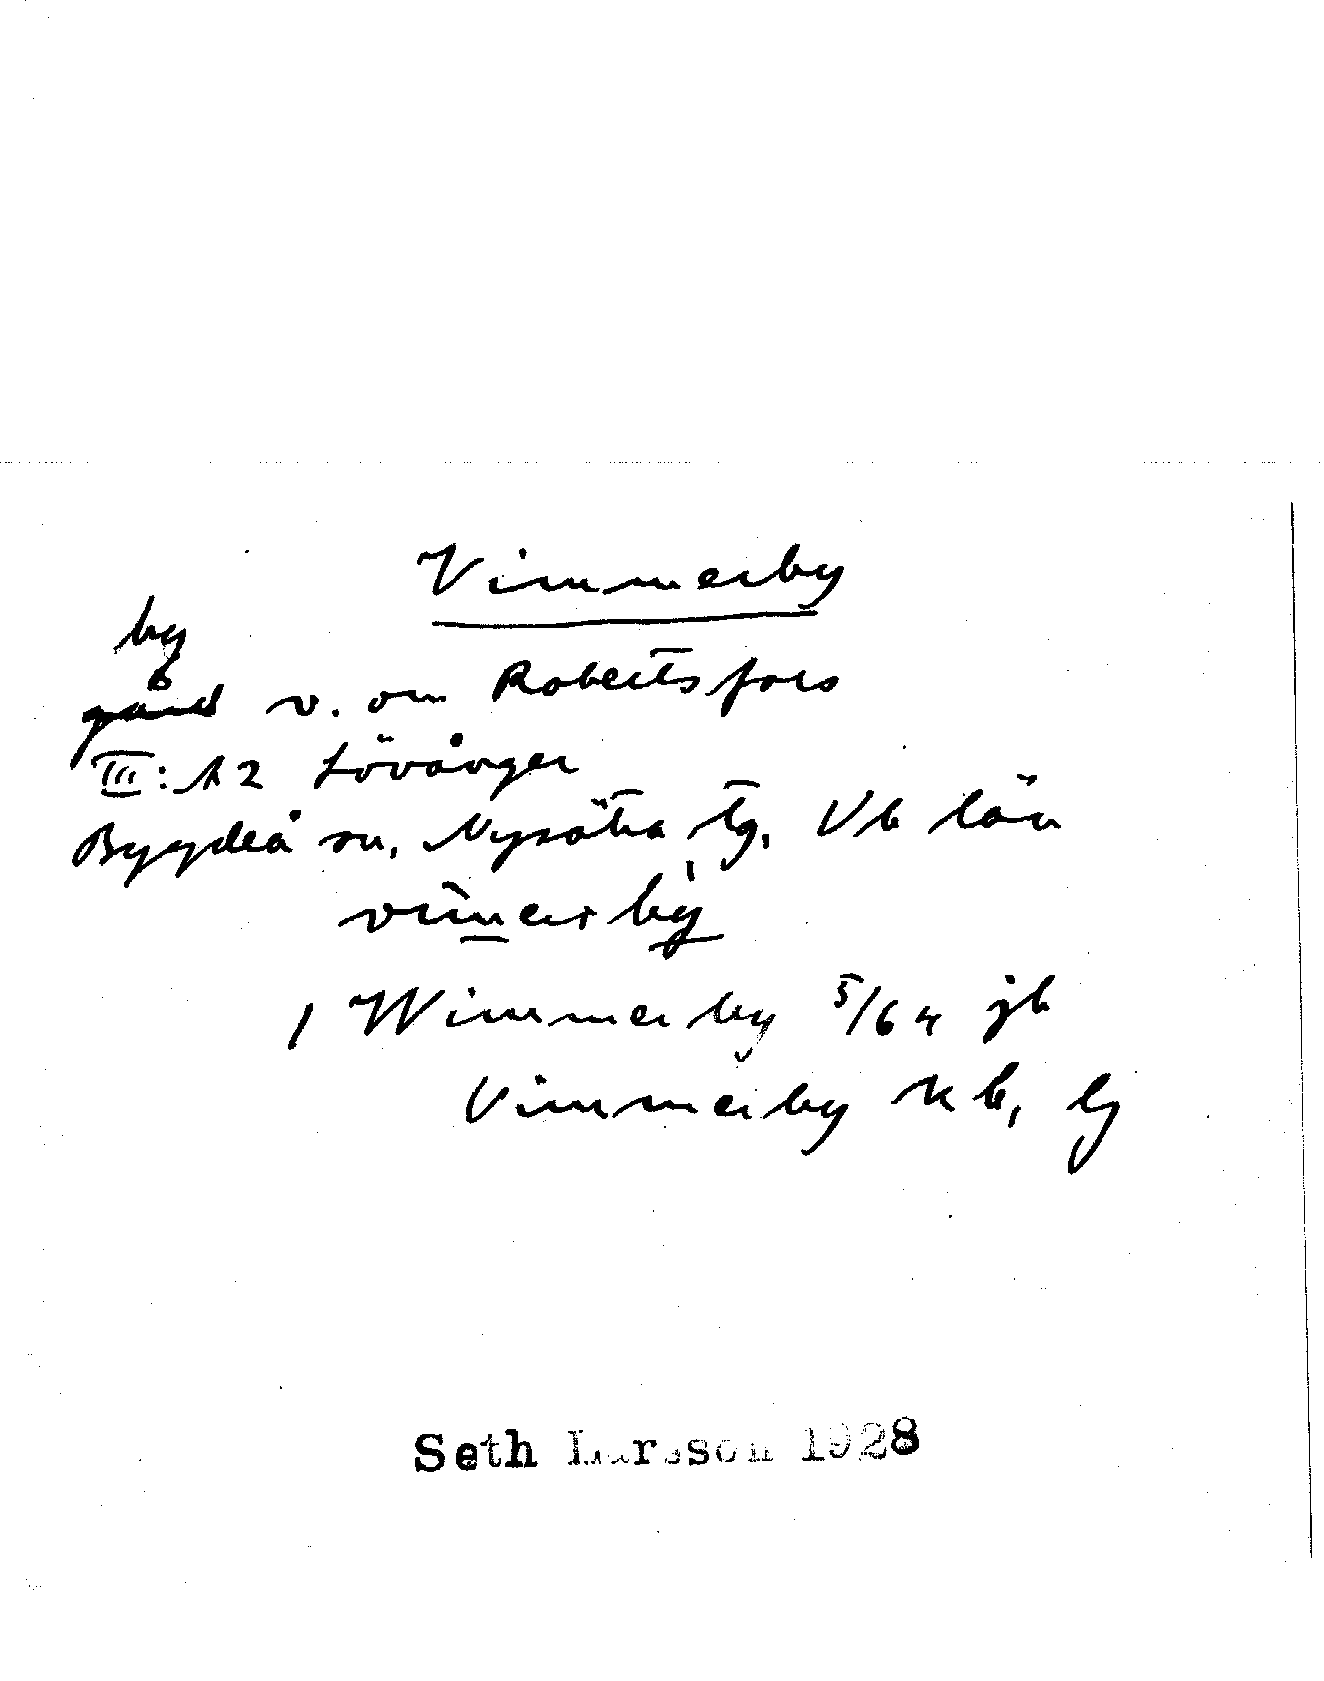 Vimmerby
by
gård v. om Robertsfors
III: h2 Lövånger
Bygdeå sn, Nysätra tg, Vb län
vim̀erbý
1 Wimmerby 5/64 jb
Vimmerby kb, lj
Seth Larsson 1928